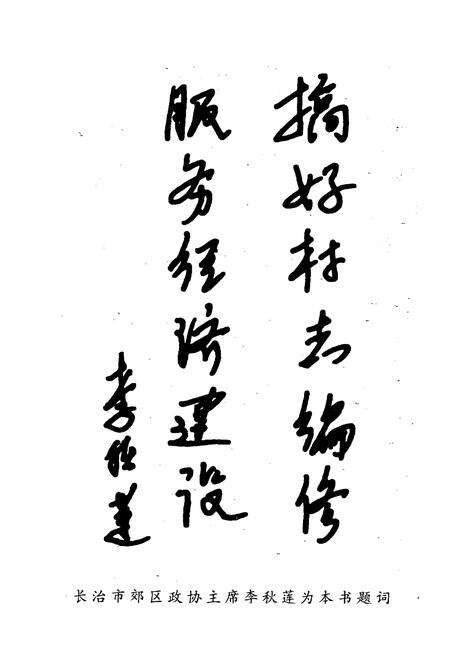 搞好村志编修
服务经济建设
李秋莲
长治市郊区政协主席李秋莲为本书题词